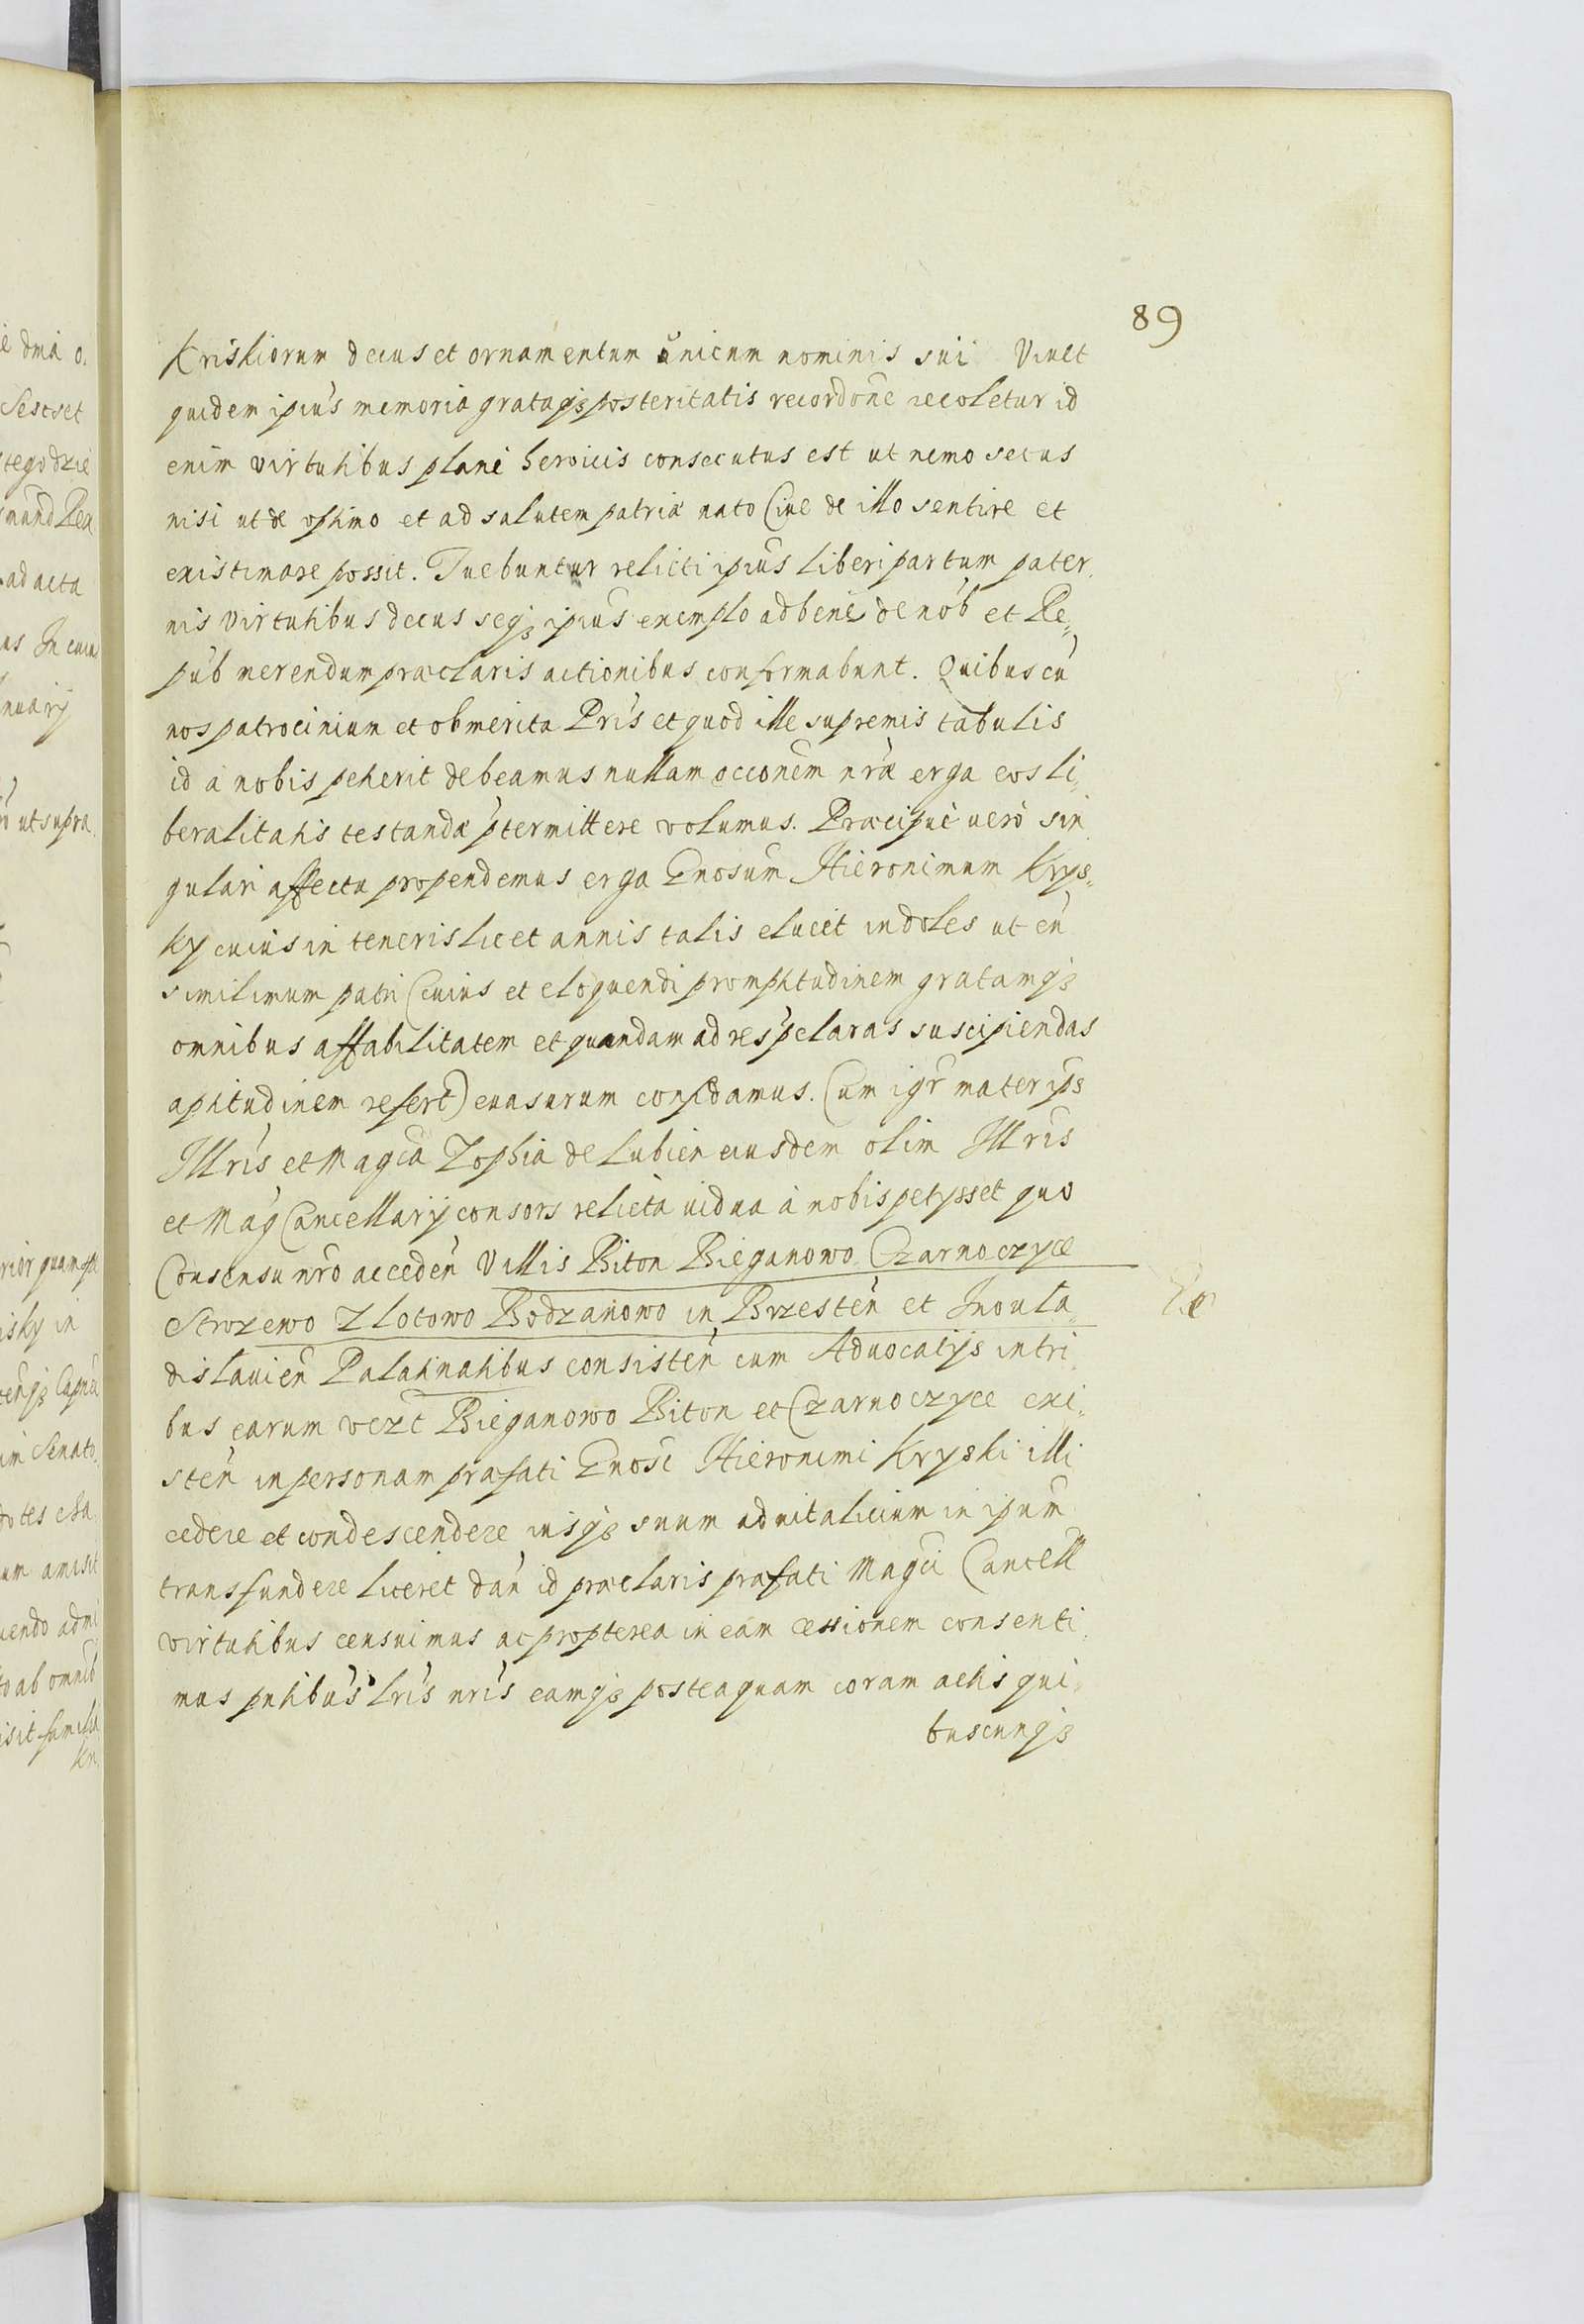 89
Kriskiorum decus et ornamentum unicum nominis sui Viuet
quidem ipiu's memoria grataq₃ posteritatis recordone recoletur id
enim virtutibus plane heroicis consecutus est ut nemo secus
nisi ut de optimo et ad salutem patriæ nato Ciue de illo sentire et
existimare possit. Tuebuntur relicti ipius liberi partum pater,
nis virtutibus decus seq₃ ipius exemplo ad bene de nob et Re„
pub merendum præclaris actionibus conformabunt. Quibus cu
nos patrocinium et ob merita Pris et quod ille supremis tabulis
id à nobis petierit debeamus nullam occonem nræ erga eos li,
beralitatis testandæ ptermittere volumus. Præcipuè uerò sin
gulari affectu propendemus erga Gnosum Hieronimum Krys„
ky cuius in teneris licet annis talis elucet indoles ut eu
similimum patri (cuius et eloquendi promptitudinem gratamq₃
omnibus affabilitatem et quandam ad res pclaras suscipiendas
aptitudinem refert) euasurum confidamus. Cum igr mater ips
Illris et Magca Zophia de Lubien eiusdem olim Illris
et Mag Cancellarij consors relicta uidua à nobis petysset quo
Consensu nro acceden Villis Biton Bieganowo Czarnoczyce
Strozewo Zlotowo Bodzanowo in Brzesten et Inoula„
dislauien Palatinatibus consisten cum Aduocatijs in tri
bus earum vczt Bieganowo Biton et Czarnoczyce exi„
sten in personam præfati Gnosi Hieronimi Kryski illi
cedere et condescendere iusq₃ suum aduitalicium in ipum
transfundere liceret dan id præclaris præfati Magci Cancell
virtutibus censuimus ac propterea in eam cessionem consenti
mus pntibus lris nris eamq₃ posteaquam coram actis qui,
buscunq₃